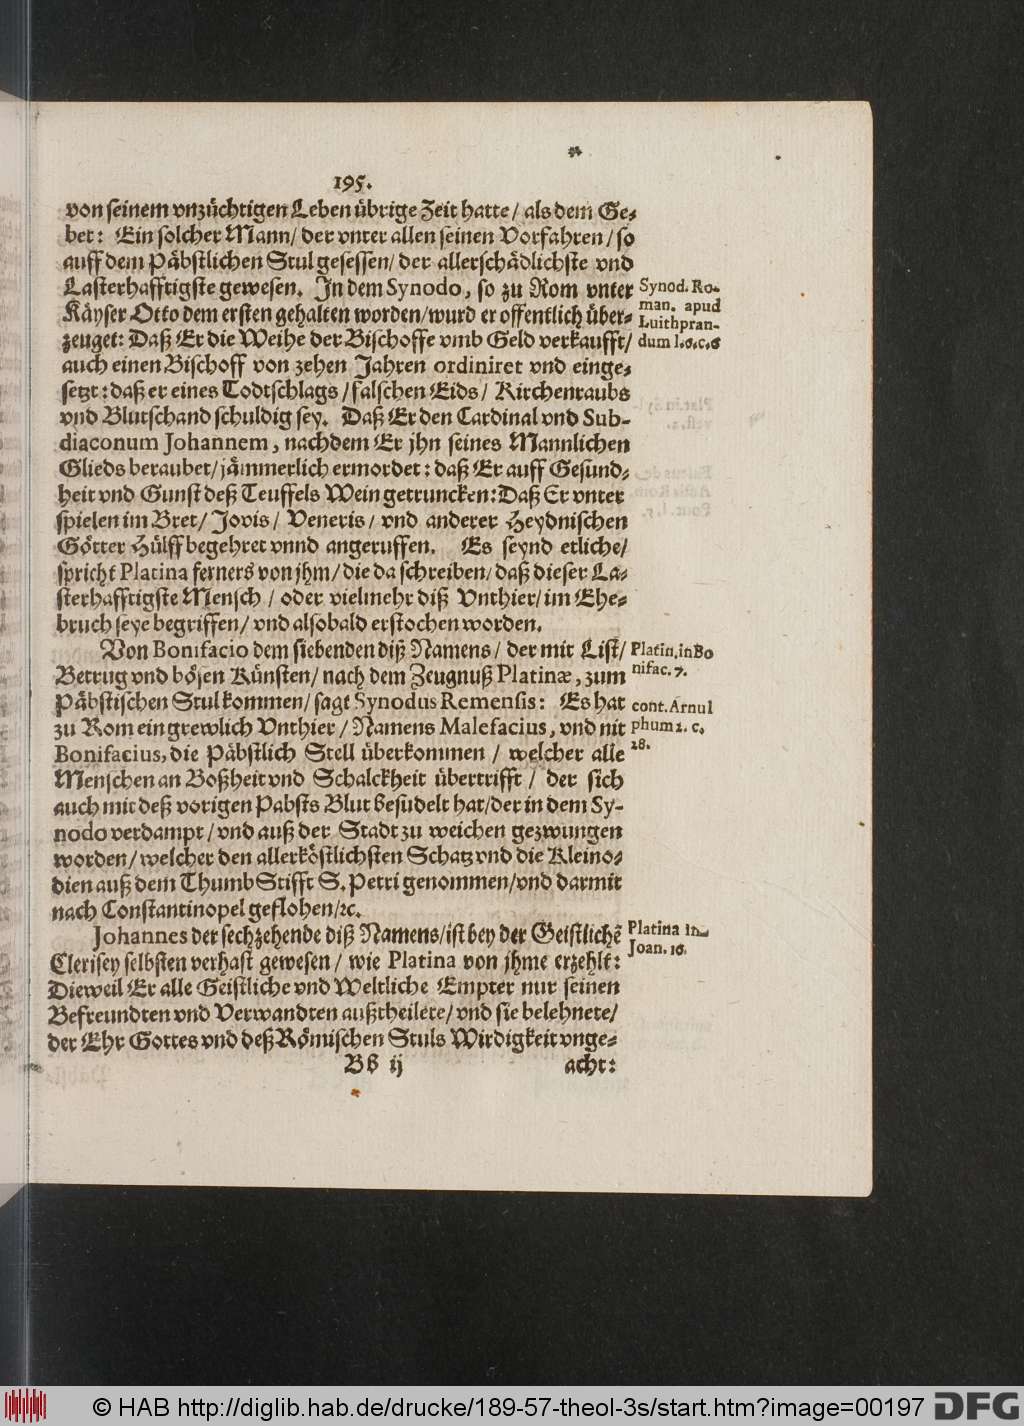 195.
von seinem vnzüchtigen Leben übrige Zeit hatte/ als dem Ge-
bet: Ein solcher Mann/ der vnter allen seinen Vorfahren/ so
auff dem Päbstlichen Stul gesessen/ der allerschädlichste vnd
Lasterhafftigste gewesen. In dem Synodo, so zu Rom vnter
Käyser Otto dem ersten gehalten worden/ wurd er offentlich über-
zeuget: Daß Er die Weihe der Bischoffe vmb Geld verkaufft/
auch einen Bischoff von zehen Jahren ordiniret vnd einge-
setzt: daß er eines Todtschlags/ falschen Eids/ Kirchenraubs
vnd Blutschand schuldig sey. Daß Er den Cardinal vnd Sub-
diaconum Johannem, nachdem Er jhn seines Mannlichen
Glieds beraubet/ jämmerlich ermordet: daß Er auff Gesund-
heit vnd Gunst deß Teuffels Wein getruncken: Daß Er vnter
spielen im Bret/ Jovis/ Veneris/ vnd anderer Heydnischen
Götter Hülff begehret vnnd angeruffen. Es seynd etliche/
spricht Platina ferners von jhm/ die da schreiben/ daß dieser La-
sterhafftigste Mensch/ oder vielmehr diß Vnthier/ im Ehe-
bruch seye begriffen/ vnd alsobald erstochen worden.
Synod. Ro-
man. apud
Luithpran-
dum l.6.c.6
Von Bonifacio dem siebenden diß Namens/ der mit List/
Betrug vnd bösen Künsten/ nach dem Zeugnuß Platinæ, zum
Päbstischen Stul kommen/ sagt Synodus Remensis: Es hat
zu Rom ein grewlich Vnthier/ Namens Malefacius, vnd nit
Bonifacius, die Päbstlich Stell überkommen/ welcher alle
Menschen an Boßheit vnd Schalckheit übertrifft/ der sich
auch mit deß vorigen Pabsts Blut besudelt hat/ der in dem Sy-
nodo verdampt/ vnd auß der Stadt zu weichen gezwungen
worden/ welcher den allerköstlichsten Schatz vnd die Kleino-
dien auß dem Thumb Stifft S. Petri genommen/ vnd darmit
nach Constantinopel geflohen/ ꝛc.
Platin. in Bo
nifac. 7.
cont. Arnul
phum 2. c.
28.
Johannes der sechzehende diß Namens/ ist bey der Geistlichẽ
Clerisey selbsten verhast gewesen/ wie Platina von jhme erzehlt:
Dieweil Er alle Geistliche vnd Weltliche Empter nur seinen
Befreundten vnd Verwandten außtheilete/ vnd sie belehnete/
der Ehr Gottes vnd deß Römischen Stuls Wirdigkeit vnge-
Platina in
Joan. 16.
Bb ij
acht:
© HAB http://diglib.hab.de/drucke/189-57-theol-3s/start.htm?image=00197
DFG